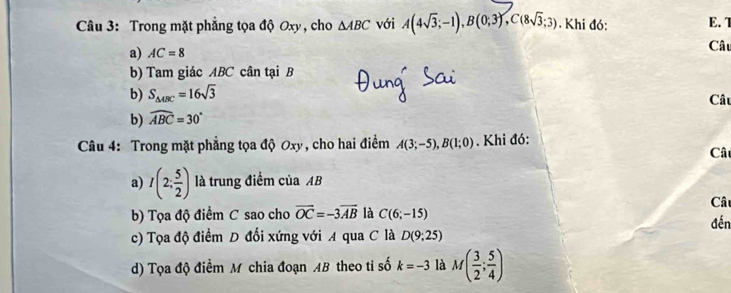 Câu 3: Trong mặt phẳng tọa độ Oxy, cho ΔABC với A(4√3;−1), B(0;3), C(8√3;3). Khi đó:
a) AC = 8
b) Tam giác ABC cân tại B
b) S_{ΔABC} = 16√3
b) \widehat{ABC} = 30°
Đung Sai
Câu 4: Trong mặt phẳng tọa độ Oxy, cho hai điểm A(3;−5), B(1;0). Khi đó:
a) I(2; 5/2) là trung điểm của AB
b) Tọa độ điểm C sao cho \overrightarrow{OC} = −3\overrightarrow{AB} là C(6;−15)
c) Tọa độ điểm D đối xứng với A qua C là D(9;25)
d) Tọa độ điểm M chia đoạn AB theo tỉ số k = −3 là M(3/2; 5/4)
E.
Câu
Câu
Câu
Câu
đến